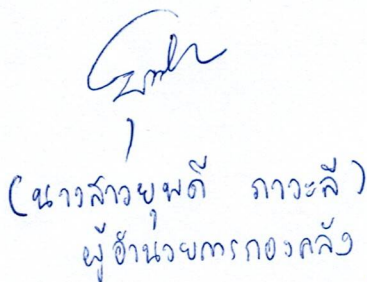 (นางสาวยุพดี ภาวะลี)
ผู้อำนวยการกองคลัง